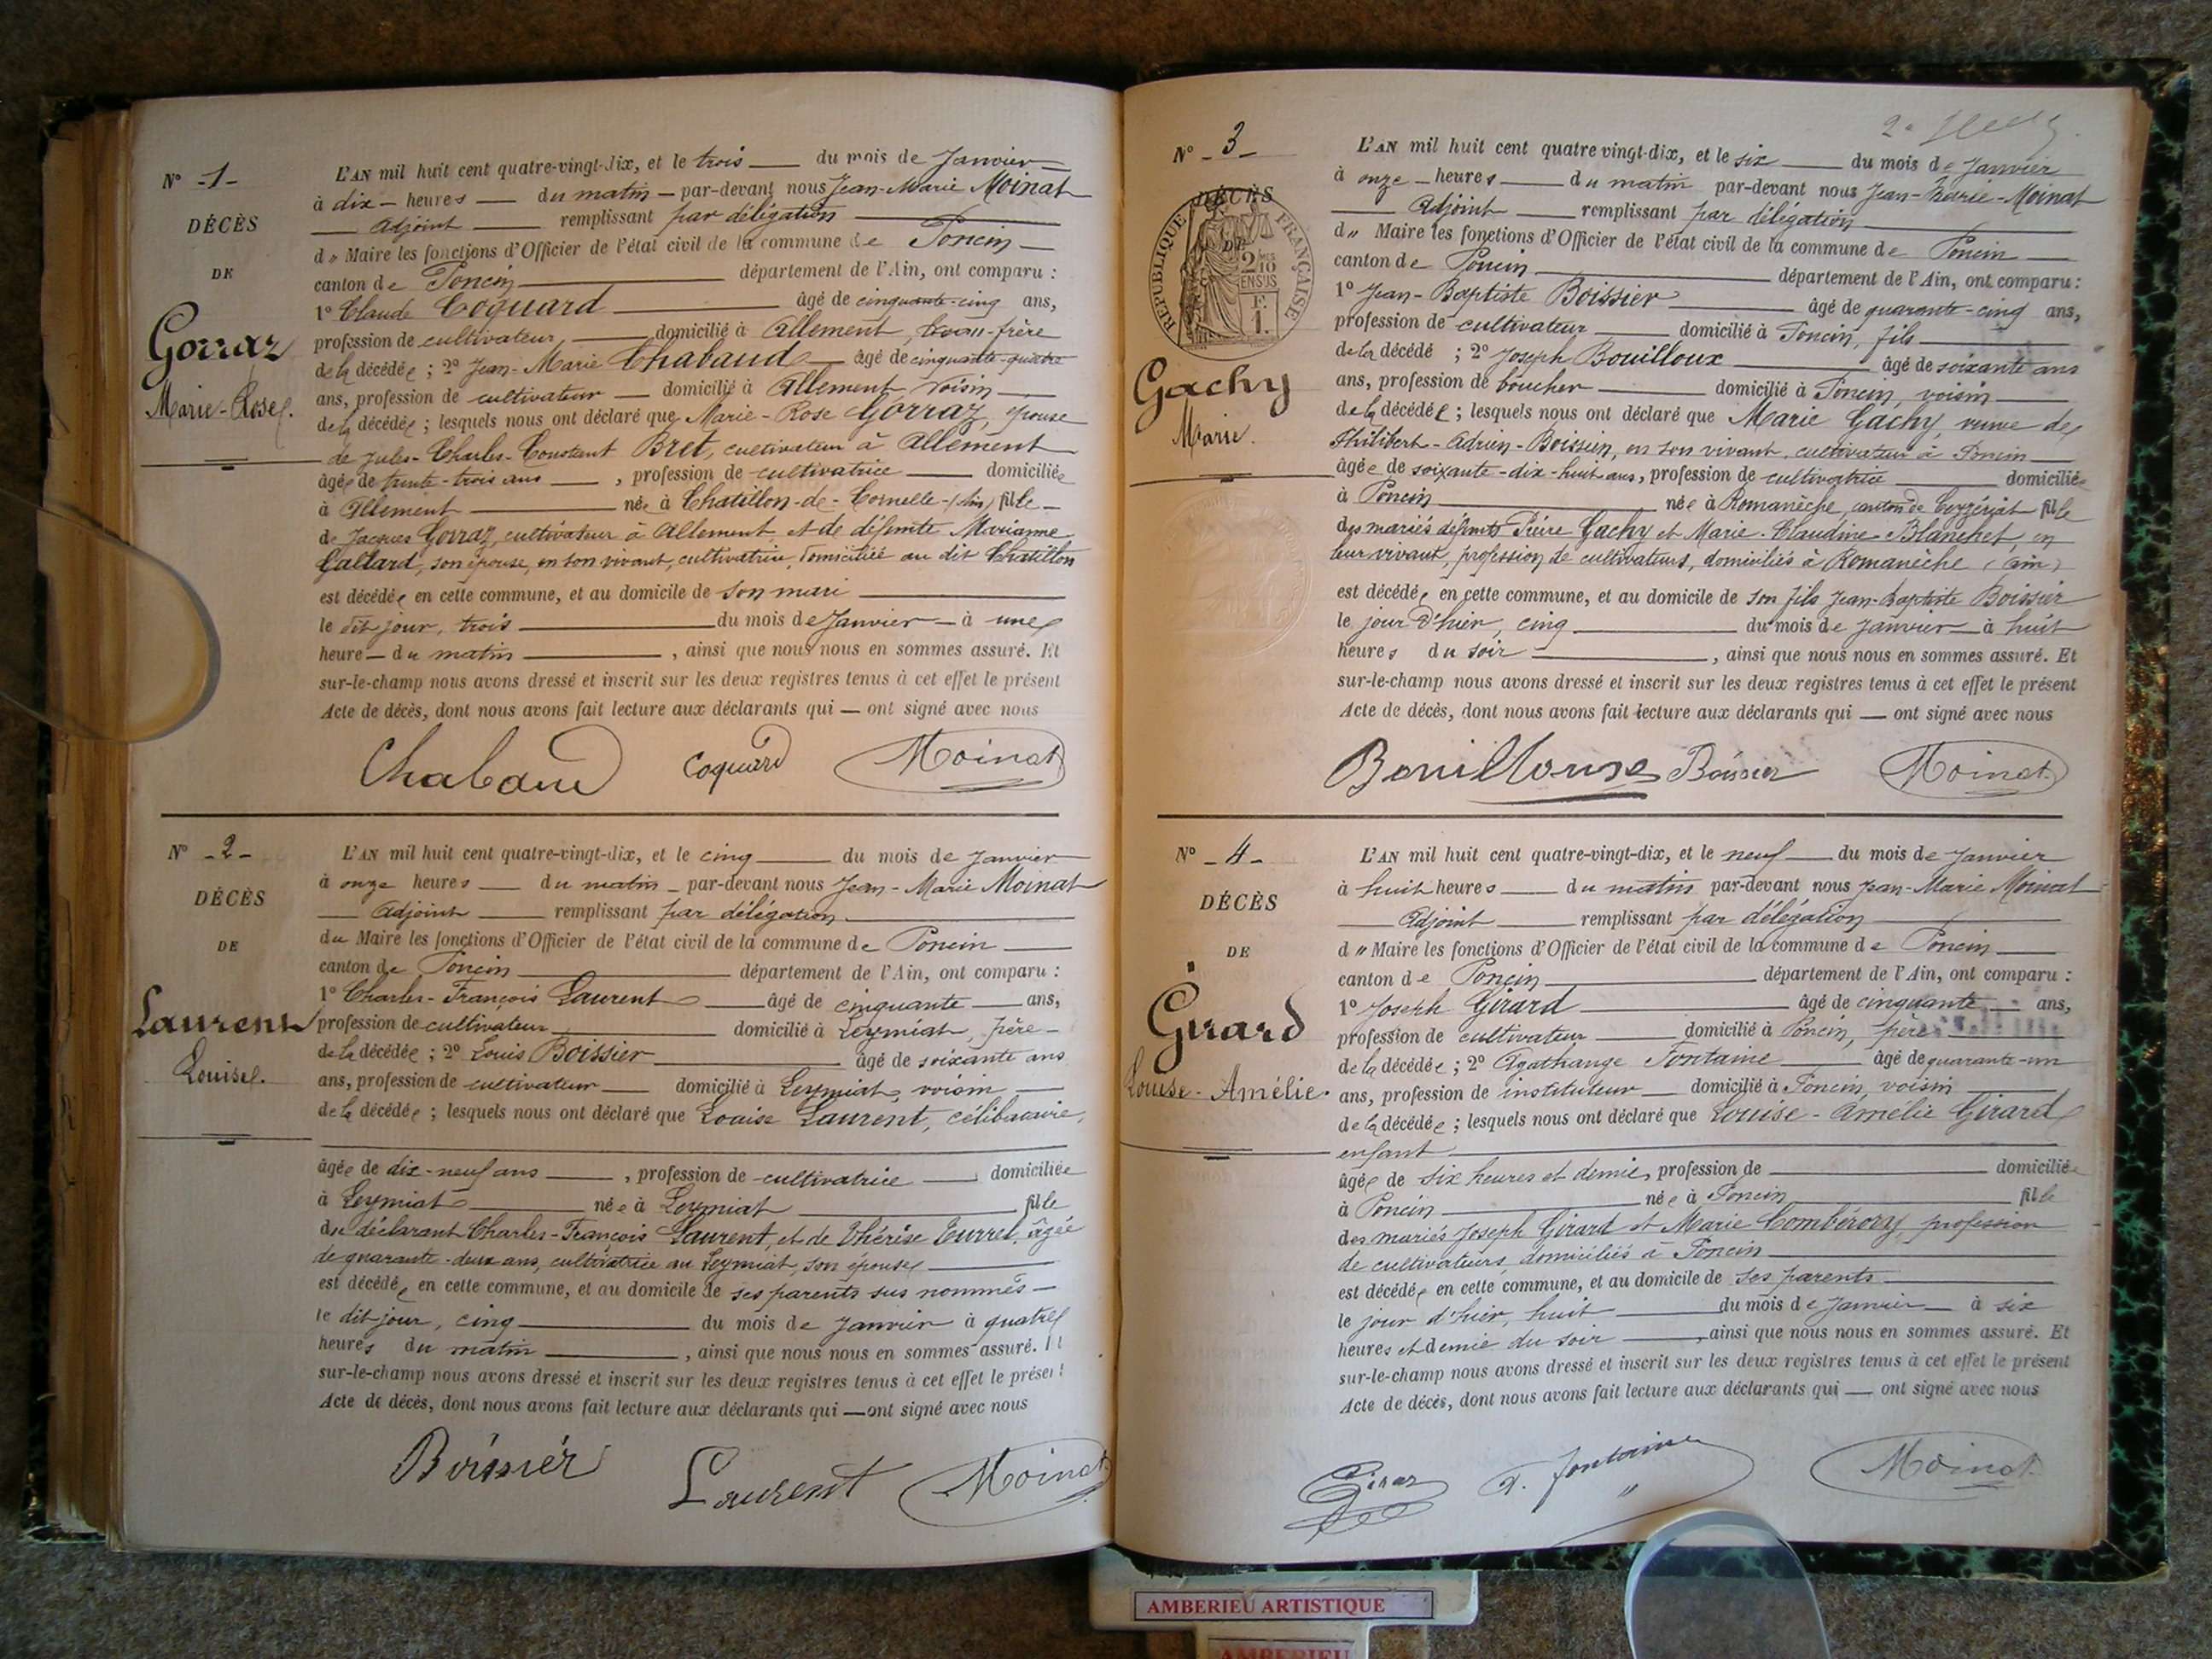 N° -1-
DÉCÈS
DE
Gorraz
Marie-Rose.
L'AN mil huit cent quatre-vingt-dix, et le trois du mois de Janvier
à dix heures du matin par-devant nous Jean-Marie Moinat
Adjoint remplissant par délégation
d" Maire les fonctions d'Officier de l'état civil de la commune de Poncin
canton de Poncin département de l'Ain, ont comparu :
1° Claude Coquard âgé de cinquante-cinq ans,
profession de cultivateur domicilié à Allement, beau-frère
de la décédée ; 2° Jean-Marie Chabaud âgé de cinquante-quatre
ans, profession de cultivateur domicilié à Allement, voisin
de la décédée ; lesquels nous ont déclaré que Marie-Rose Gorraz, épouse
de Jules-Charles-Constant Bret, cultivateur à Allement
âgée de trente-trois ans , profession de cultivatrice domiciliée
à Allement née à Chatillon-de-Cornelle-(Ain) fille
de Jacques Gorraz, cultivateur à Allement et de défunte Marianne
Gallard, son épouse, en son vivant, cultivatrice, domiciliée au dit Chatillon
est décédée en cette commune, et au domicile de son mari
le dit jour, trois du mois de Janvier à une
heure du matin , ainsi que nous nous en sommes assuré. Et
sur-le-champ nous avons dressé et inscrit sur les deux registres tenus à cet effet le présent
Acte de décès, dont nous avons fait lecture aux déclarants qui — ont signé avec nous
Chabaud Coquard Moinat
N° -2-
DÉCÈS
DE
Laurent
Louise.
L'AN mil huit cent quatre-vingt-dix, et le cinq du mois de Janvier
à onze heures du matin par-devant nous Jean-Marie Moinat
Adjoint remplissant par délégation
du Maire les fonctions d'Officier de l'état civil de la commune de Poncin
canton de Poncin département de l'Ain, ont comparu :
1° Charles-François Laurent âgé de cinquante ans,
profession de cultivateur domicilié à Leymiat, père
de la décédée ; 2° Louis Boissier âgé de soixante ans
ans, profession de cultivateur domicilié à Leymiat, voisin
de la décédée ; lesquels nous ont déclaré que Louise Laurent, célibataire,
âgée de dix-neuf ans , profession de cultivatrice domiciliée
à Leymiat née à Leymiat fille
du déclarant Charles-François Laurent, et de Thérèse Curret, âgée
de quarante-deux ans, cultivatrice au Leymiat, son épouse
est décédée en cette commune, et au domicile de ses parents sus nommés
le dit jour, cinq du mois de Janvier à quatre
heures du matin , ainsi que nous nous en sommes assuré. Et
sur-le-champ nous avons dressé et inscrit sur les deux registres tenus à cet effet le présent
Acte de décès, dont nous avons fait lecture aux déclarants qui — ont signé avec nous
Boissier Laurent Moinat
N° -3-
DÉCÈS
DE
RÉPUBLIQUE FRANÇAISE
2/10 EN SUS
Gachy
Marie.
L'AN mil huit cent quatre-vingt-dix, et le six du mois de Janvier
à onze heures du matin par-devant nous Jean-Marie-Moinat
Adjoint remplissant par délégation
d" Maire les fonctions d'Officier de l'état civil de la commune de Poncin
canton de Poncin département de l'Ain, ont comparu :
1° Jean-Baptiste Boissier âgé de quarante-cinq ans,
profession de cultivateur domicilié à Poncin, fils
de la décédé ; 2° Joseph Bouilloux âgé de soixante ans
ans, profession de boucher domicilié à Poncin, voisin
de la décédée ; lesquels nous ont déclaré que Marie Gachy, veuve de
Philibert-Adrien-Boissier, en son vivant, cultivateur à Poncin
âgée de soixante-dix-huit ans, profession de cultivatrice domiciliée
à Poncin née à Romanèche, canton de Ceyzériat fille
des mariés défunts Pierre Gachy et Marie-Claudine Blanchet, en
leur vivant, profession de cultivateurs, domiciliés à Romanèche (Ain)
est décédée en cette commune, et au domicile de son fils Jean-Baptiste Boissier
le jour d'hier, cinq du mois de Janvier à huit
heures du soir , ainsi que nous nous en sommes assuré. Et
sur-le-champ nous avons dressé et inscrit sur les deux registres tenus à cet effet le présent
Acte de décès, dont nous avons fait lecture aux déclarants qui — ont signé avec nous
Bouilloux Boissier Moinat
N° -4-
DÉCÈS
DE
Girard
Louise-Amélie.
L'AN mil huit cent quatre-vingt-dix, et le neuf du mois de Janvier
à huit heures du matin par-devant nous Jean-Marie Moinat
Adjoint remplissant par délégation
d" Maire les fonctions d'Officier de l'état civil de la commune de Poncin
canton de Poncin département de l'Ain, ont comparu :
1° Joseph Girard âgé de cinquante ans,
profession de cultivateur domicilié à Poncin, père
de la décédée ; 2° Agathange Fontaine âgé de quarante-un
ans, profession de instituteur domicilié à Poncin, voisin
de la décédée ; lesquels nous ont déclaré que Louise-Amélie Girard
enfant
âgée de six heures et demie, profession de domiciliée
à Poncin née à Poncin fille
des mariés Joseph Girard et Marie Combérozy, profession
de cultivateurs, domiciliés à Poncin
est décédée en cette commune, et au domicile de ses parents
le jour d'hier, huit du mois de Janvier à six
heures et demie du soir , ainsi que nous nous en sommes assuré. Et
sur-le-champ nous avons dressé et inscrit sur les deux registres tenus à cet effet le présent
Acte de décès, dont nous avons fait lecture aux déclarants qui — ont signé avec nous
Girard A. Fontaine Moinat
AMBERIEU ARTISTIQUE
AMBERIEU